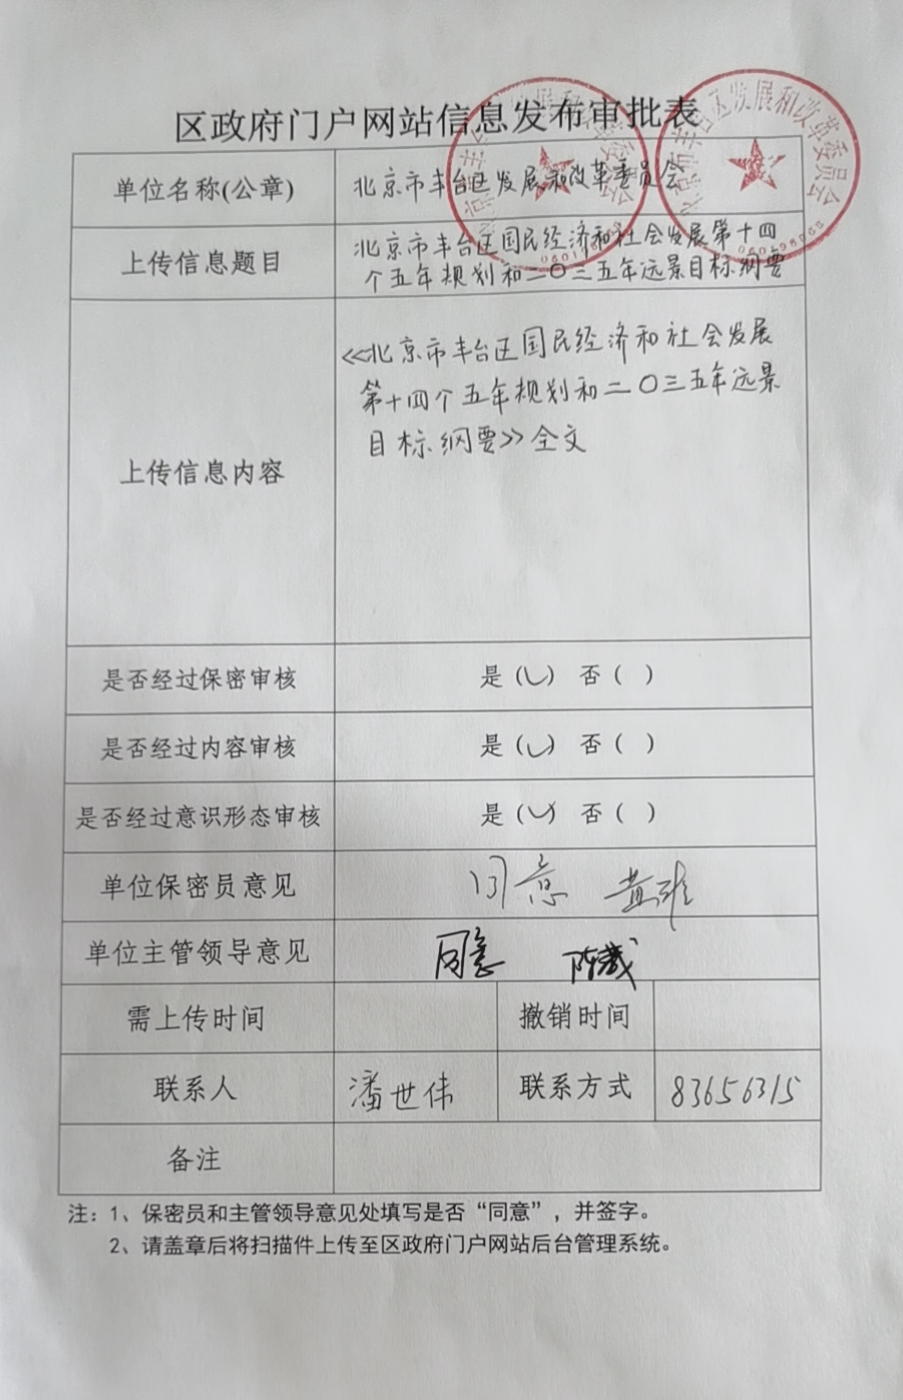 区政府门户网站信息发布审批表
单位名称(公章) 北京市丰台区发展和改革委员会
上传信息题目 北京市丰台区国民经济和社会发展第十四
个五年规划和二〇三五年远景目标纲要
上传信息内容
《北京市丰台区国民经济和社会发展
第十四个五年规划和二〇三五年远景
目标纲要》全文
是否经过保密审核 是(✓) 否( )
是否经过内容审核 是(✓) 否( )
是否经过意识形态审核 是(✓) 否( )
单位保密员意见 同意
单位主管领导意见 同意
需上传时间 撤销时间
联系人 潘世伟 联系方式 83656315
备注
注：1、保密员和主管领导意见处填写是否“同意”，并签字。
2、请盖章后将扫描件上传至区政府门户网站后台管理系统。
北京市丰台区发展和改革委员会